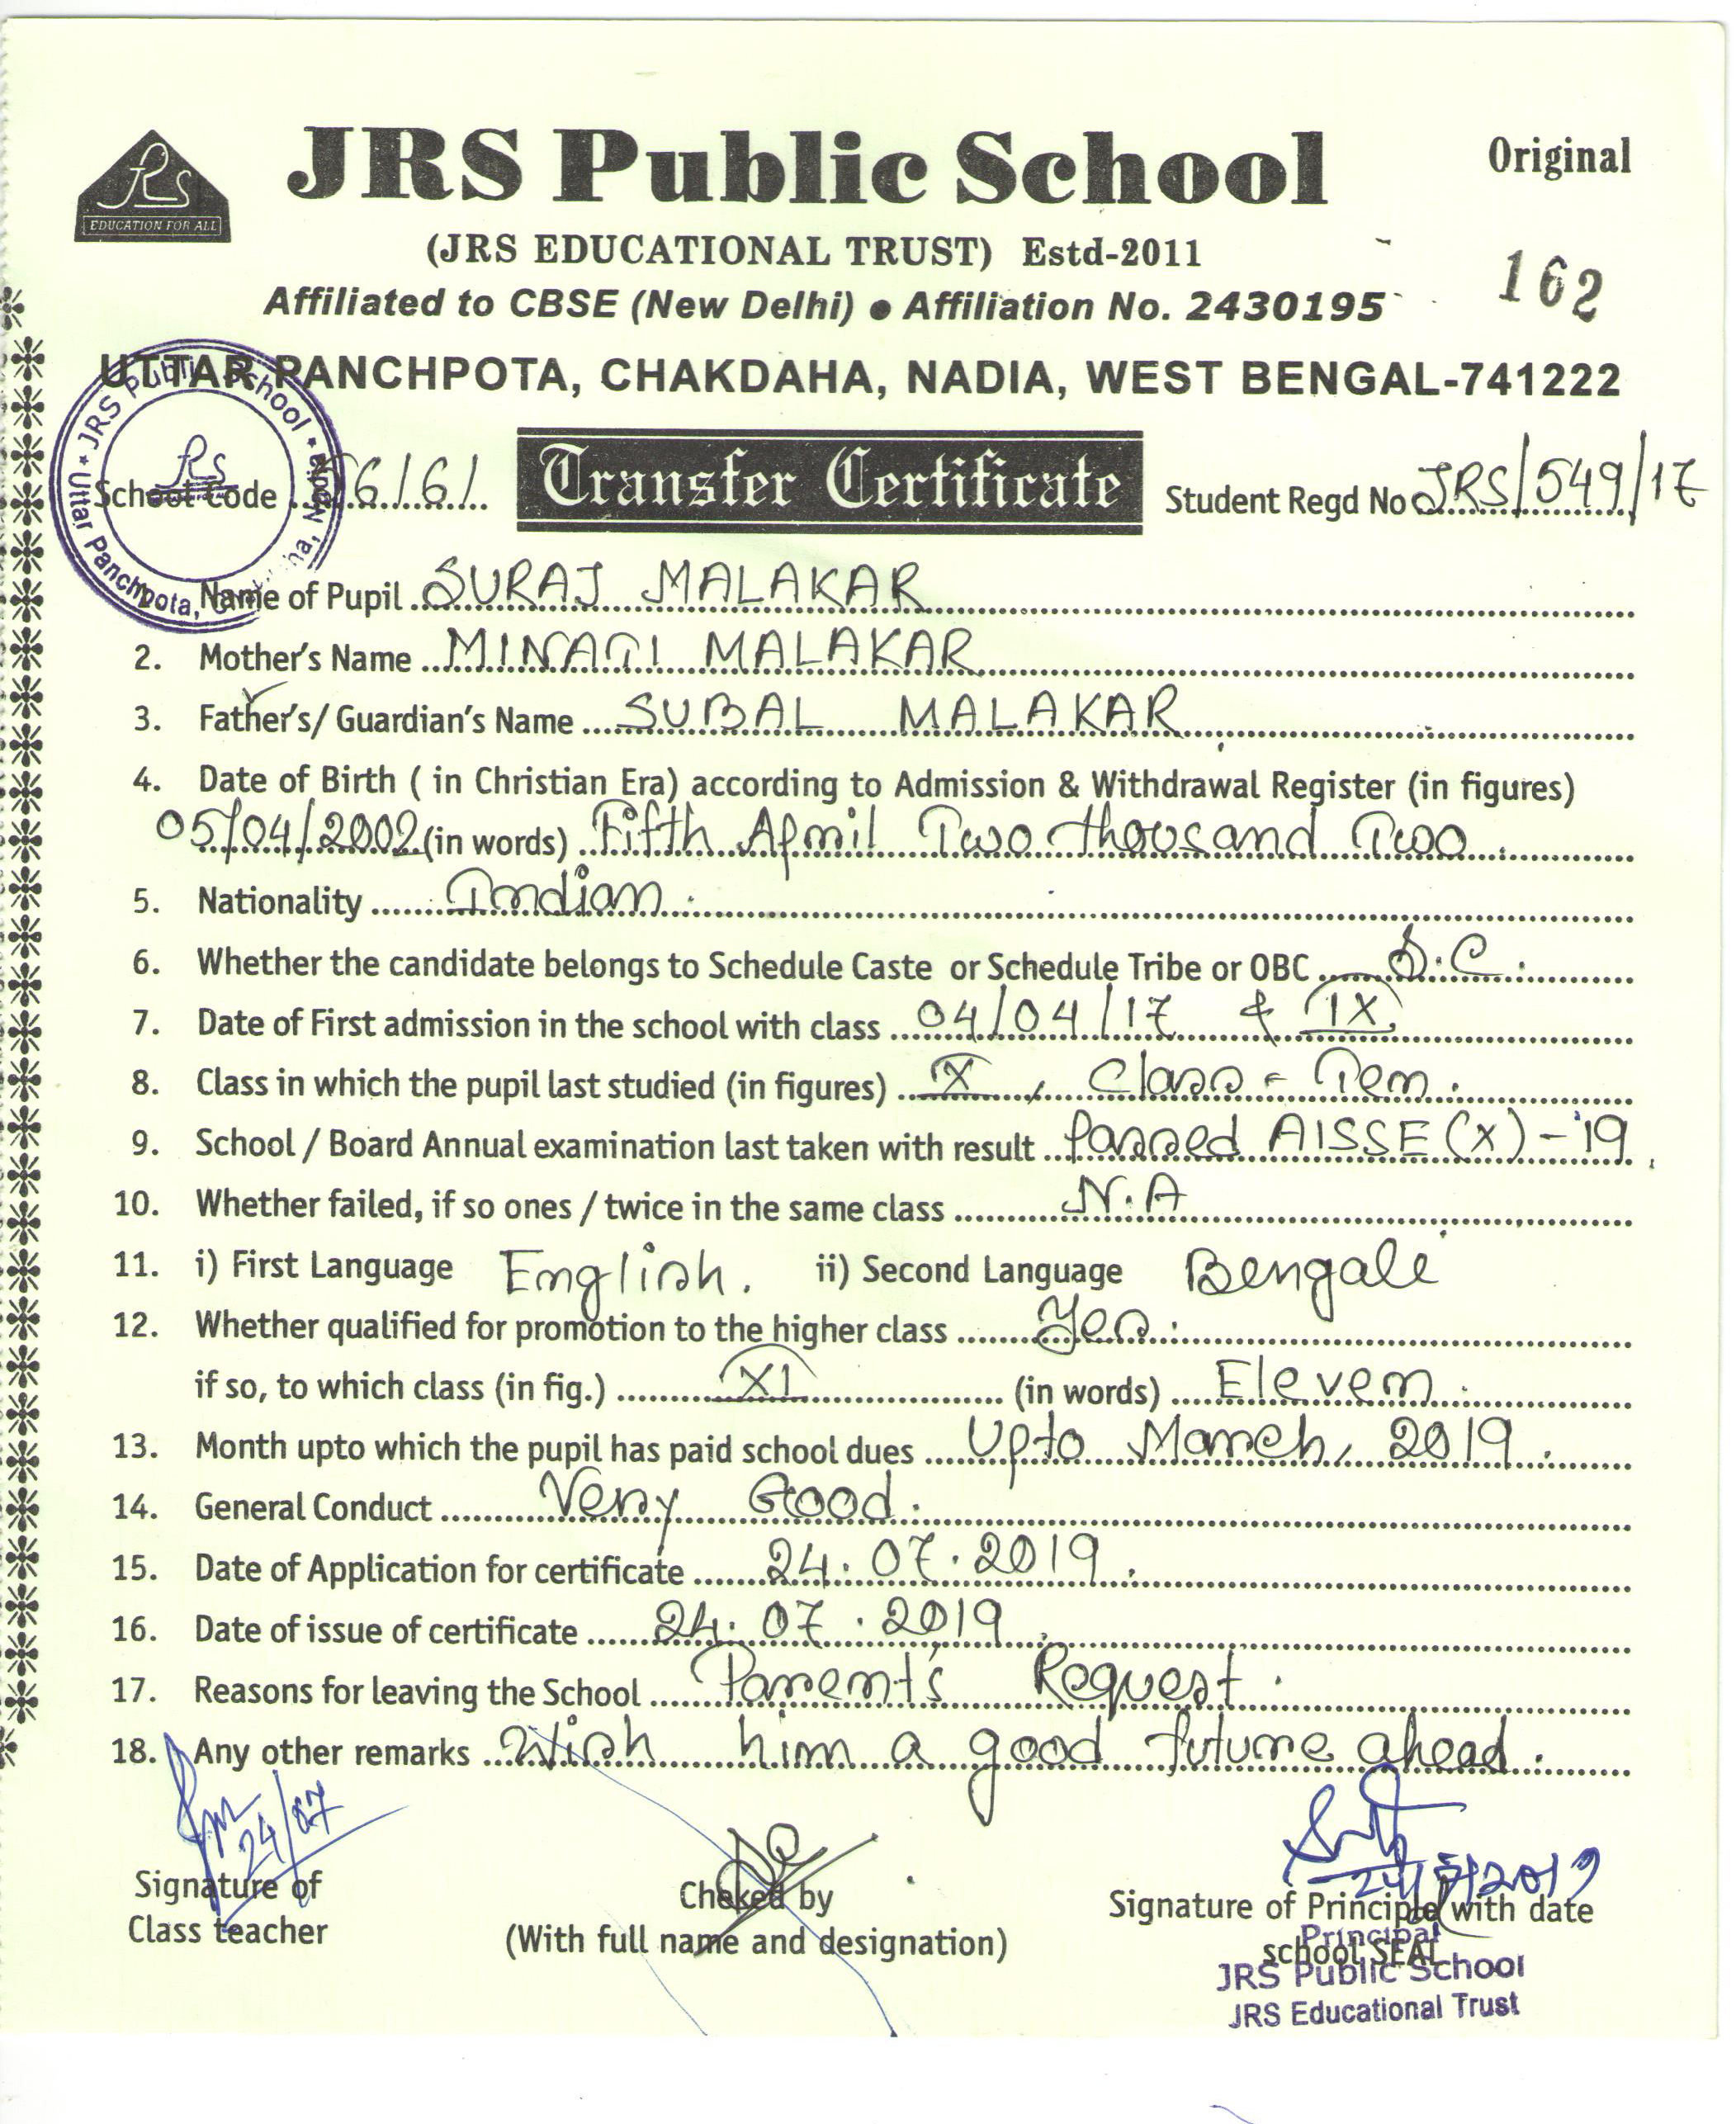 JRS Public School
Original
JRS
EDUCATION FOR ALL
(JRS EDUCATIONAL TRUST) Estd-2011
162
Affiliated to CBSE (New Delhi) ● Affiliation No. 2430195
UTTAR PANCHPOTA, CHAKDAHA, NADIA, WEST BENGAL-741222
JRS Public School * Uttar Panchpota, Nadia
JRS
School Code 6161
Transfer Certificate
Student Regd No JRS/549/17
Name of Pupil SURAJ MALAKAR
2. Mother's Name MINATI MALAKAR
3. Father's/ Guardian's Name SUBAL MALAKAR
4. Date of Birth ( in Christian Era) according to Admission & Withdrawal Register (in figures)
05/04/2002 (in words) Fifth April Two thousand Two
5. Nationality Indian
6. Whether the candidate belongs to Schedule Caste or Schedule Tribe or OBC S.C.
7. Date of First admission in the school with class 04/04/17 & IX
8. Class in which the pupil last studied (in figures) X, Class - Ten.
9. School / Board Annual examination last taken with result Passed AISSE (X) - '19
10. Whether failed, if so ones / twice in the same class N.A
11. i) First Language English. ii) Second Language Bengali
12. Whether qualified for promotion to the higher class Yes.
if so, to which class (in fig.) XI (in words) Eleven.
13. Month upto which the pupil has paid school dues Upto March, 2019.
14. General Conduct Very Good.
15. Date of Application for certificate 24.07.2019.
16. Date of issue of certificate 24.07.2019.
17. Reasons for leaving the School Parent's Request.
18. Any other remarks Wish him a good future ahead.
24/07
24/07/2019
Signature of
Class teacher
Cheked by
(With full name and designation)
Signature of Principle with date
school SEAL
Principal
JRS Public School
JRS Educational Trust